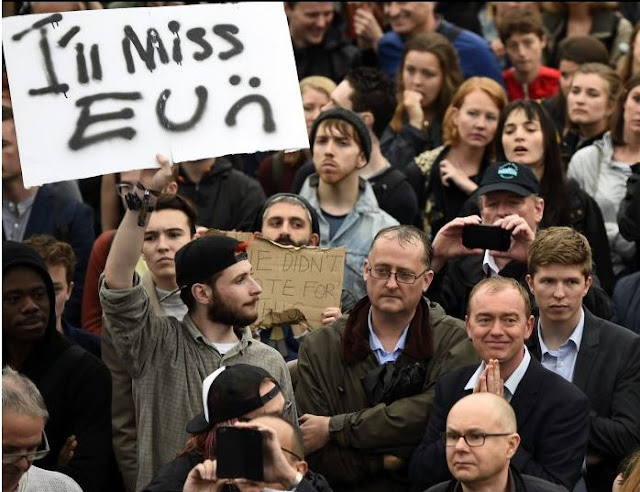 I'll Miss
EU :(
WE DIDN'T
VOTE FOR